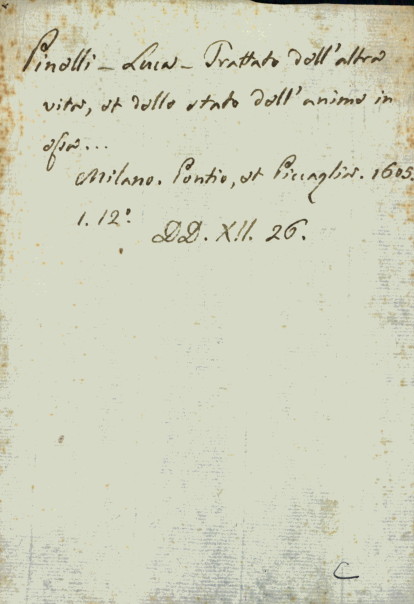 Pinelli - Luca - Trattato dell'altra
vita, et dello stato dell'anime in
essa...
Milano. Pontio, et Piccaglia. 1605.
1. 12°.
DD. XII. 26.
C